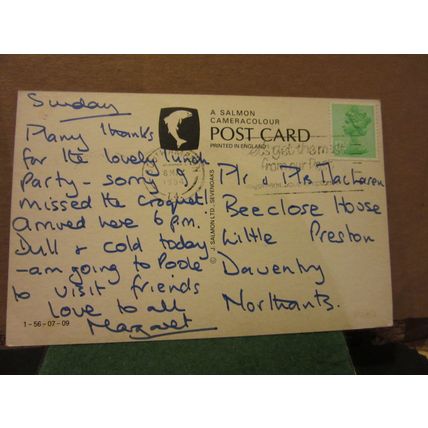 Sunday
Many thanks
for the lovely lunch
party - sorry I
missed the Croquet!
Arrived here 6 p.m.
Dull & cold today
- am going to Poole
to visit friends
Love to all
Margaret
1-56-07-09
A SALMON
CAMERACOLOUR
POST CARD
PRINTED IN ENGLAND
© J. SALMON LTD., SEVENOAKS
Mr & Mrs MacLaren
Beeclose House
Little Preston
Daventry
Northants.